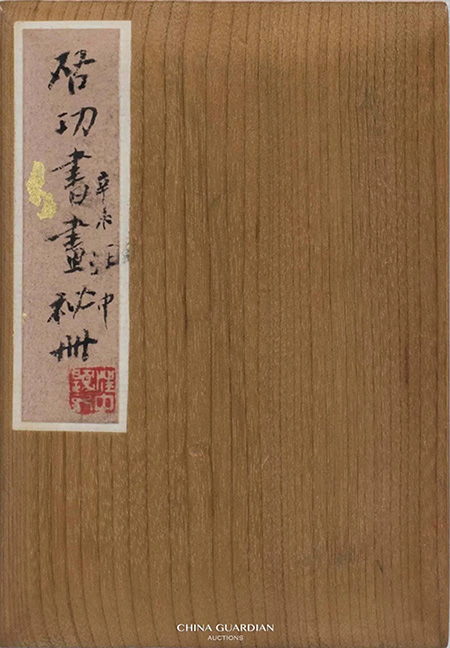 启功書畫秘册
辛未江中
CHINA GUARDIAN
AUCTIONS